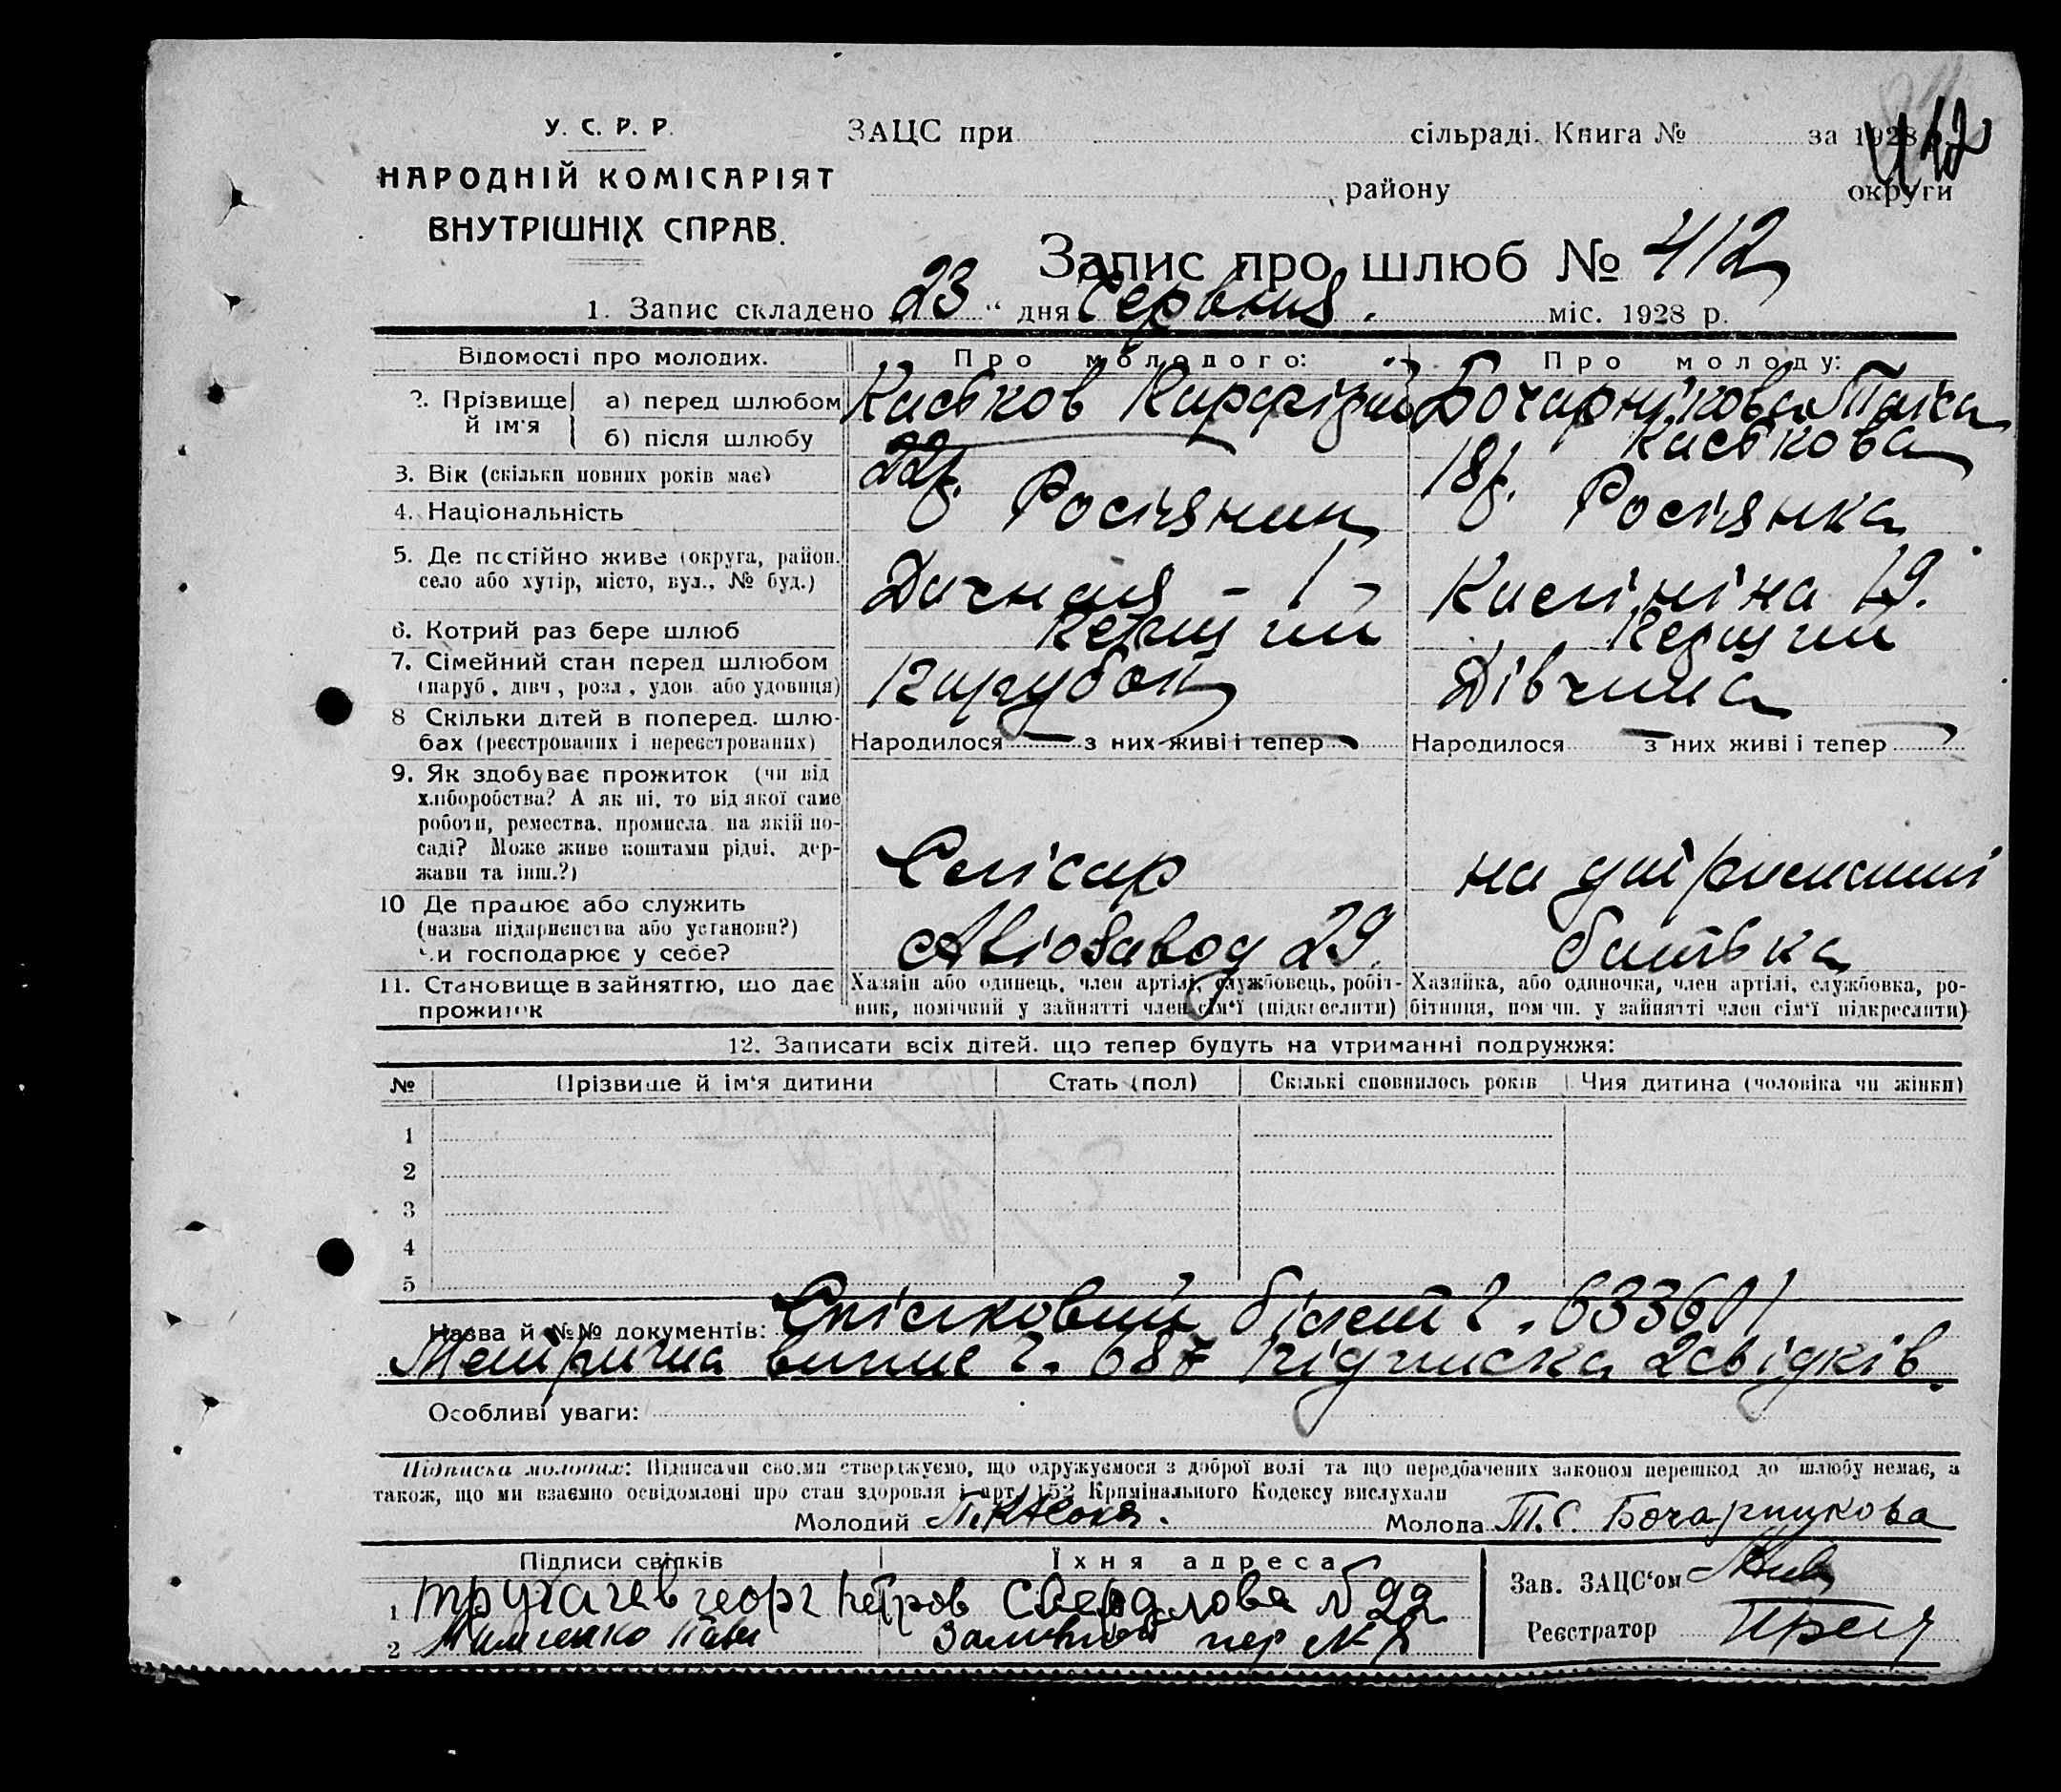 412
У. С. Р. Р.
НАРОДНІЙ КОМІСАРІЯТ
ВНУТРІШНІХ СПРАВ.
ЗАЦС при сільраді. Книга № за 1928
району округи
Запис про шлюб № 412
1. Запис складено 23 " дня Червня. міс. 1928 р.
Відомості про молодих. Про молодого: Про молоду:
2. Прізвище й ім'я а) перед шлюбом Бочарнікова
б) після шлюбу
3. Вік (скільки повних років має) 22 р. 18 р.
4. Національність Росіянин Росіянка
5. Де постійно живе (округа, район. село або хутір, місто, вул., № буд.) Дачная - 1 - 19.
6. Котрий раз бере шлюб Перший Перший
7. Сімейний стан перед шлюбом (паруб., дівч., розл., удов. або удовиця) Парубок Дівчина
8 Скільки дітей в поперед. шлюбах (реєстрованих і нереєстрованих) Народилося з них живі і тепер Народилося з них живі і тепер
9. Як здобуває прожиток (чи від хліборобства? А як ні, то від якої саме роботи, ремества, промисла, на якій посаді? Може живе коштами рідні, держави та інш.?) Слісар на утриманні
10 Де працює або служить (назва підприємства або установи?) Чи господарює у себе? Авіозавод 29. батька
11. Становище в зайняттю, що дає прожиток
Хазяїн або одинець, член артілі, службовець, робітник, помічний у зайнятті член сім'ї (підкреслити)
Хазяйка, або одиночка, член артілі, службовка, робітниця, пом чн. у зайнятті член сім'ї підкреслити)
12. Записати всіх дітей. що тепер будуть на утриманні подружжя:
№ Прізвище й ім'я дитини Стать (пол) Скількі сповнилось років Чия дитина (чоловіка чи жінки)
1
2
3
4
5
Назва й №№ документів: Спісковий білет ч. 633601
Метрична випис ч. 687 підписка 2 свідків.
Особливі уваги:
Підписка молодих: Підписами своїми стверджуємо, що одружуємося з доброї волі та що передбачених законом перешкод до шлюбу немає, а
також, що ми взаємно освідомлені про стан здоровля і арт. 152 Кримінального Кодексу вислухали
Молодий Молода Т. С. Бочарникова
Підписи свідків Їхня адреса
1 Трухачев георг петров Свердлова № 92
2 пер №
Зав. ЗАЦС'ом
Реєстратор